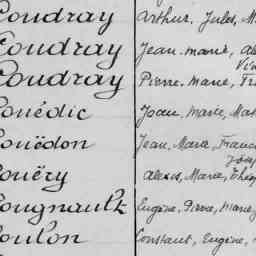 Coudray Arthur, Jules, M
Coudray Jean-marie, Al
Coudray Pierre-Marie, Fr
Couëdic Joan, Marie, Mat
Couëdon Jean, Marie, Franc
Couëry Alexis, Marie, Théop
Cougnault Eugène, Pierre, Marie
Coulon Constant, Eugène,